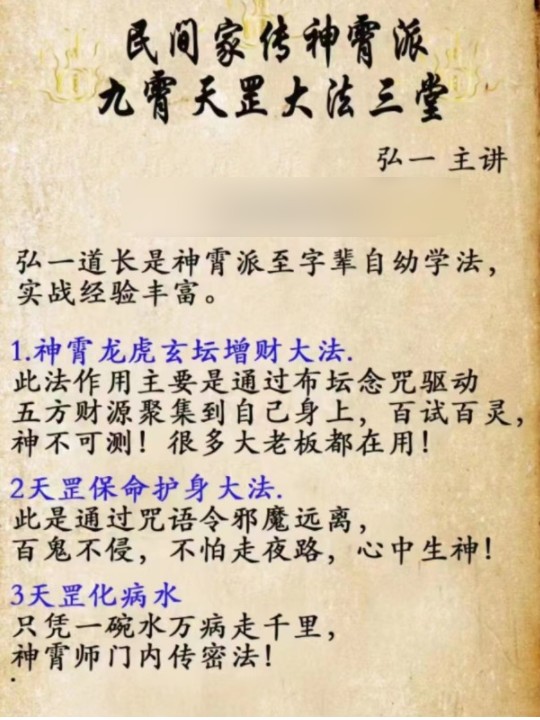 民间家传神霄派
九霄天罡大法三堂
弘一 主讲
弘一道长是神霄派至字辈自幼学法，
实战经验丰富。
1.神霄龙虎玄坛增财大法.
此法作用主要是通过布坛念咒驱动
五方财源聚集到自己身上，百试百灵，
神不可测！很多大老板都在用！
2天罡保命护身大法.
此是通过咒语令邪魔远离，
百鬼不侵，不怕走夜路，心中生神！
3天罡化病水
只凭一碗水万病走千里，
神霄师门内传密法！
.